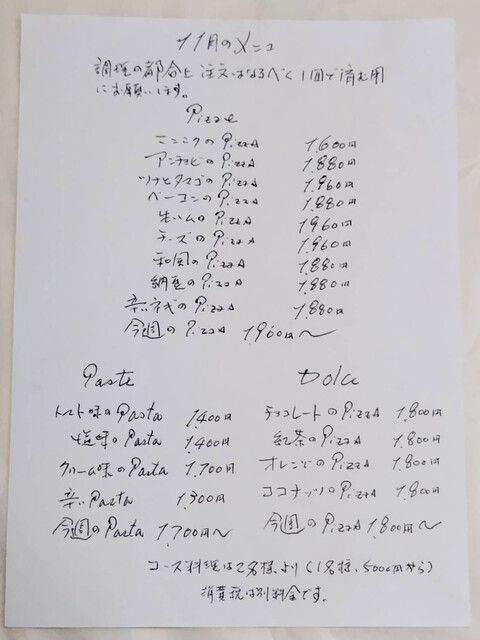 11月のメニュ
調理の都合上 注文はなるべく1回で済む用
にお願いします。
Pizze
ニンニクのPizzA 1,600円
アンチョビのPizzA 1,880円
ツナとタマゴのPizzA 1,960円
ベーコンのPizzA 1,880円
生ハムのPizzA 1,960円
チーズのPizzA 1,960円
和風のPizzA 1,880円
納豆のPizzA 1,880円
辛いネギのPizzA 1,880円
今週のPizzA 1,960円〜
Paste
トマト味のPasta 1,400円
塩味のPasta 1,400円
クリーム味のPasta 1,700円
辛いPasta 1,300円
今週のPasta 1,700円〜
Dolci
チョコレートのPizzA 1,800円
紅茶のPizzA 1,800円
オレンジのPizzA 1,800円
ココナッツのPizzA 1,800円
今週のPizzA 1,800円〜
コース料理は2名様より(1名様、5000円から)
消費税は別料金です。